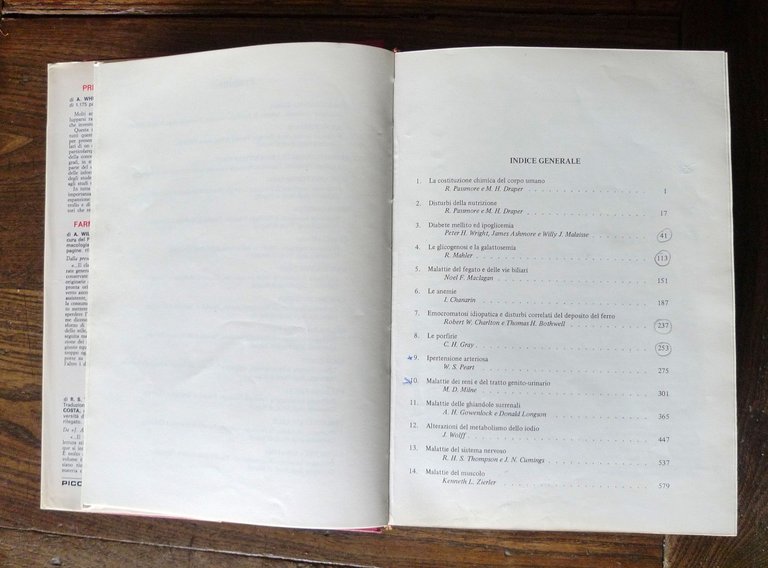 PRI
di A. WHI
di 1.175 pa
FARM
di A. WIL
R. S.
COSTA,
PICC
INDICE GENERALE
1. La costituzione chimica del corpo umano
R. Passmore e M. H. Draper . . . . . . . . . . . . . . 1
2. Disturbi della nutrizione
R. Passmore e M. H. Draper . . . . . . . . . . . . . . 17
3. Diabete mellito ed ipoglicemia
Peter H. Wright, James Ashmore e Willy J. Malaisse . . . . . . . . 41
4. Le glicogenosi e la galattosemia
R. Mahler . . . . . . . . . . . . . . 113
5. Malattie del fegato e delle vie biliari
Noel F. Maclagan . . . . . . . . . . . . . . 151
6. Le anemie
I. Chanarin . . . . . . . . . . . . . . 187
7. Emocromatosi idiopatica e disturbi correlati del deposito del ferro
Robert W. Charlton e Thomas H. Bothwell . . . . . . . . . . 237
8. Le porfirie
C. H. Gray . . . . . . . . . . . . . . 253
9. Ipertensione arteriosa
W. S. Peart . . . . . . . . . . . . . . 275
10. Malattie dei reni e del tratto genito-urinario
M. D. Milne . . . . . . . . . . . . . . 301
11. Malattie delle ghiandole surrenali
A. H. Gowenlock e Donald Longson . . . . . . . . . . . . 365
12. Alterazioni del metabolismo dello iodio
J. Wolff . . . . . . . . . . . . . . 447
13. Malattie del sistema nervoso
R. H. S. Thompson e J. N. Cumings . . . . . . . . . . . . 537
14. Malattie del muscolo
Kenneth L. Zierler . . . . . . . . . . . . . . 579